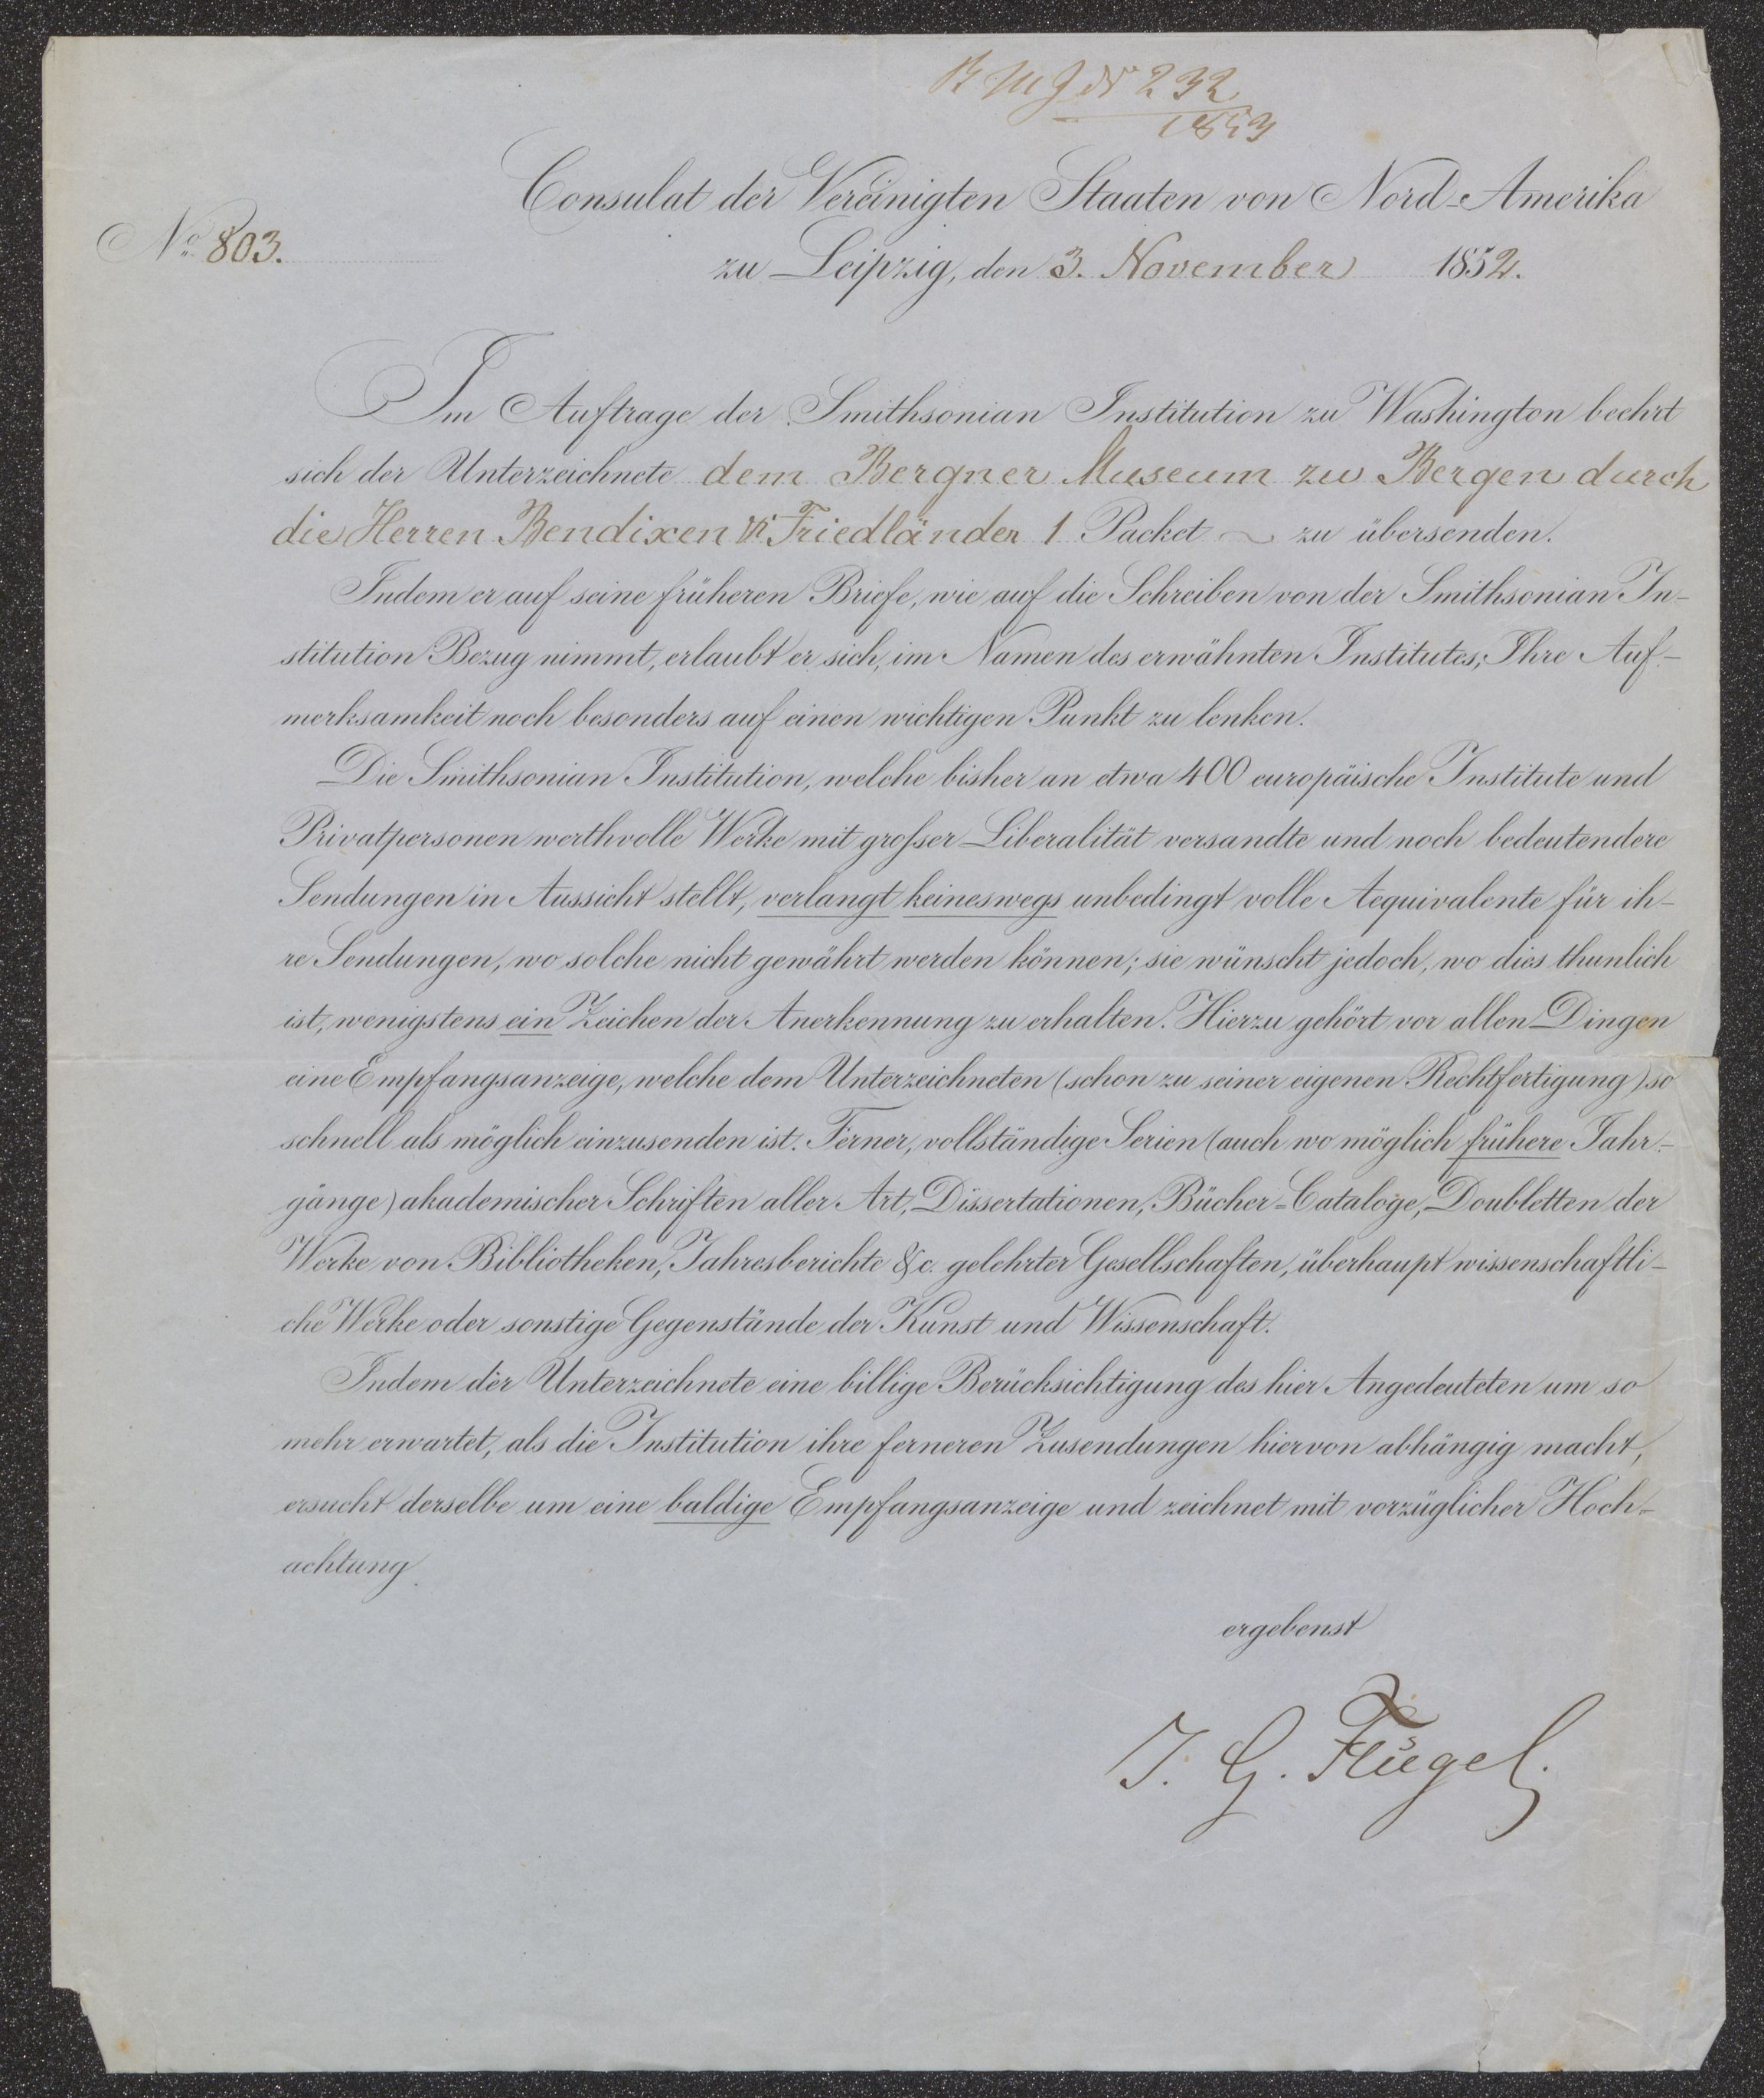 B M J No 232
1853
Consulat der Vereinigten Staaten von Nord-Amerika
No 803.
zu Leipzig, den 3. November 1852.
Im Auftrage der Smithsonian Institution zu Washington beehrt
sich der Unterzeichnete dem Bergner Museum zu Bergen durch
die Herren Bendixen & Friedländer 1 Packet ~ zu übersenden.
Indem er auf seine früheren Briefe, wie auf die Schreiben von der Smithsonian In-
stitution Bezug nimmt, erlaubt er sich, im Namen des erwähnten Institutes, Ihre Auf-
merksamkeit noch besonders auf einen wichtigen Punkt zu lenken.
Die Smithsonian Institution, welche bisher an etwa 400 europäische Institute und
Privatpersonen werthvolle Werke mit großer Liberalität versandte und noch bedeutendere
Sendungen in Aussicht stellt, verlangt keineswegs unbedingt volle Aequivalente für ih-
re Sendungen, wo solche nicht gewährt werden können; sie wünscht jedoch, wo dies thunlich
ist, wenigstens ein Zeichen der Anerkennung zu erhalten. Hierzu gehört vor allen Dingen
eine Empfangsanzeige, welche dem Unterzeichneten (schon zu seiner eigenen Rechtfertigung) so
schnell als möglich einzusenden ist. Ferner, vollständige Serien (auch wo möglich frühere Jahr-
gänge) akademischer Schriften aller Art, Dissertationen, Bücher=Cataloge, Doubletten der
Werke von Bibliotheken, Jahresberichte &c. gelehrter Gesellschaften, überhaupt wissenschaftli-
che Werke oder sonstige Gegenstände der Kunst und Wissenschaft.
Indem der Unterzeichnete eine billige Berücksichtigung des hier Angedeuteten um so
mehr erwartet, als die Institution ihre ferneren Zusendungen hiervon abhängig macht,
ersucht derselbe um eine baldige Empfangsanzeige und zeichnet mit vorzüglicher Hoch-
achtung.
ergebenst
J. G. Flügel.